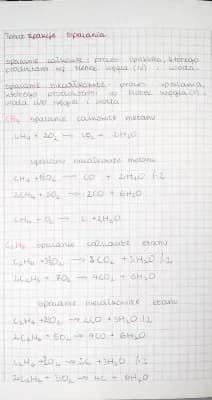 Temat: Reakcje spalania
spalanie całkowite: proces spalania, którego
produktami są tlenek węgla (IV) i woda.
spalanie niecałkowite: proces spalania,
którego produktami są tlenek węgla (II),
woda lub węgiel i woda
CH₄ spalanie całkowite metanu
CH₄ + 2O₂ → CO₂ + 2H₂O
spalanie niecałkowite metanu
CH₄ + 1½O₂ → CO + 2H₂O /·2
2CH₄ + 3O₂ → 2CO + 4H₂O
CH₄ + O₂ → C + 2H₂O
C₂H₆ spalanie całkowite etanu
C₂H₆ + 3½O₂ → 2CO₂ + 3H₂O /·2
2C₂H₆ + 7O₂ → 4CO₂ + 6H₂O
spalanie niecałkowite etanu
C₂H₆ + 2½O₂ → 2CO + 3H₂O /·2
2C₂H₆ + 5O₂ → 4CO + 6H₂O
C₂H₆ + 1½O₂ → 2C + 3H₂O /·2
2C₂H₆ + 3O₂ → 4C + 6H₂O